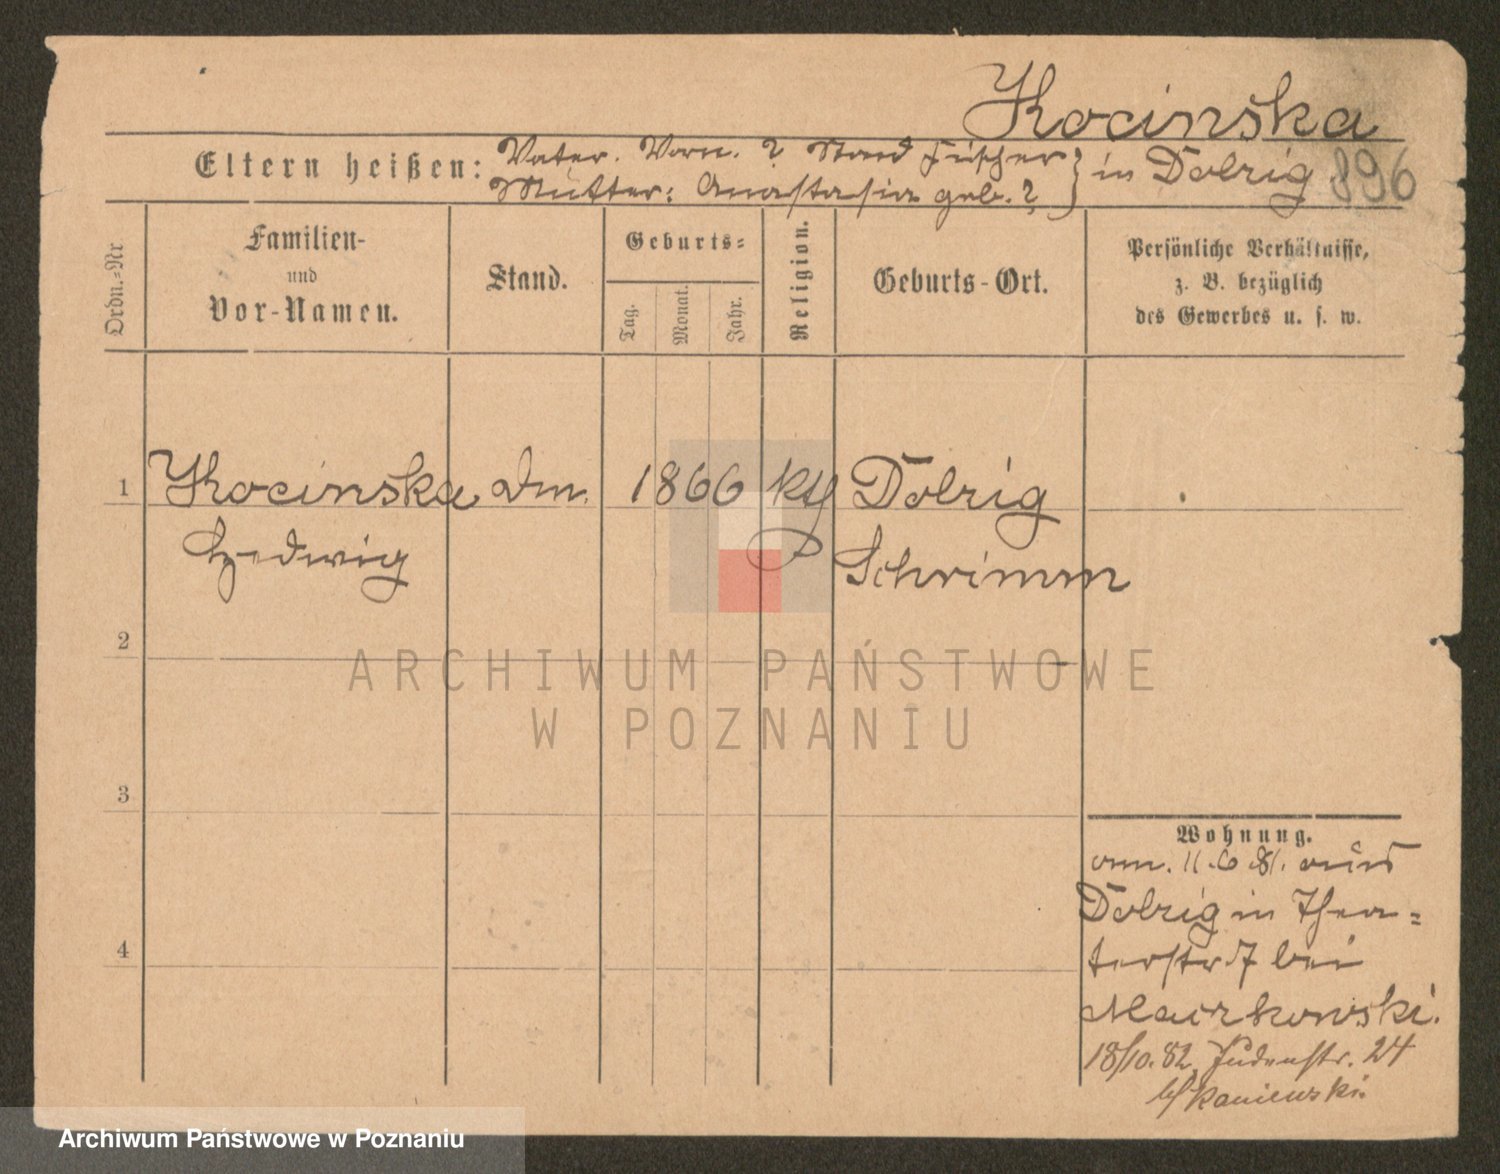 Kocinska
Eltern heißen: Vater. Vorn. ? Stand Fischer
Mutter: Anastasia geb. ? } in Dolzig 896
Ordn.-Nr
Familien-
und
Vor-Namen.
Stand.
Geburts-
Tag.
Monat.
Jahr.
Religion.
Geburts-Ort.
Persönliche Verhältnisse,
z. B. bezüglich
des Gewerbes u. s. w.
1 Kocinska 1866 Dolzig
Hedwig Schrimm
2
ARCHIWUM PAŃSTWOWE
W POZNANIU
3
Wohnung.
11.6.81. aus
Dolzig in Thea-
terstr 7 bei
18/10.82. Judenstr. 24
Kaniewski.
4
Archiwum Państwowe w Poznaniu